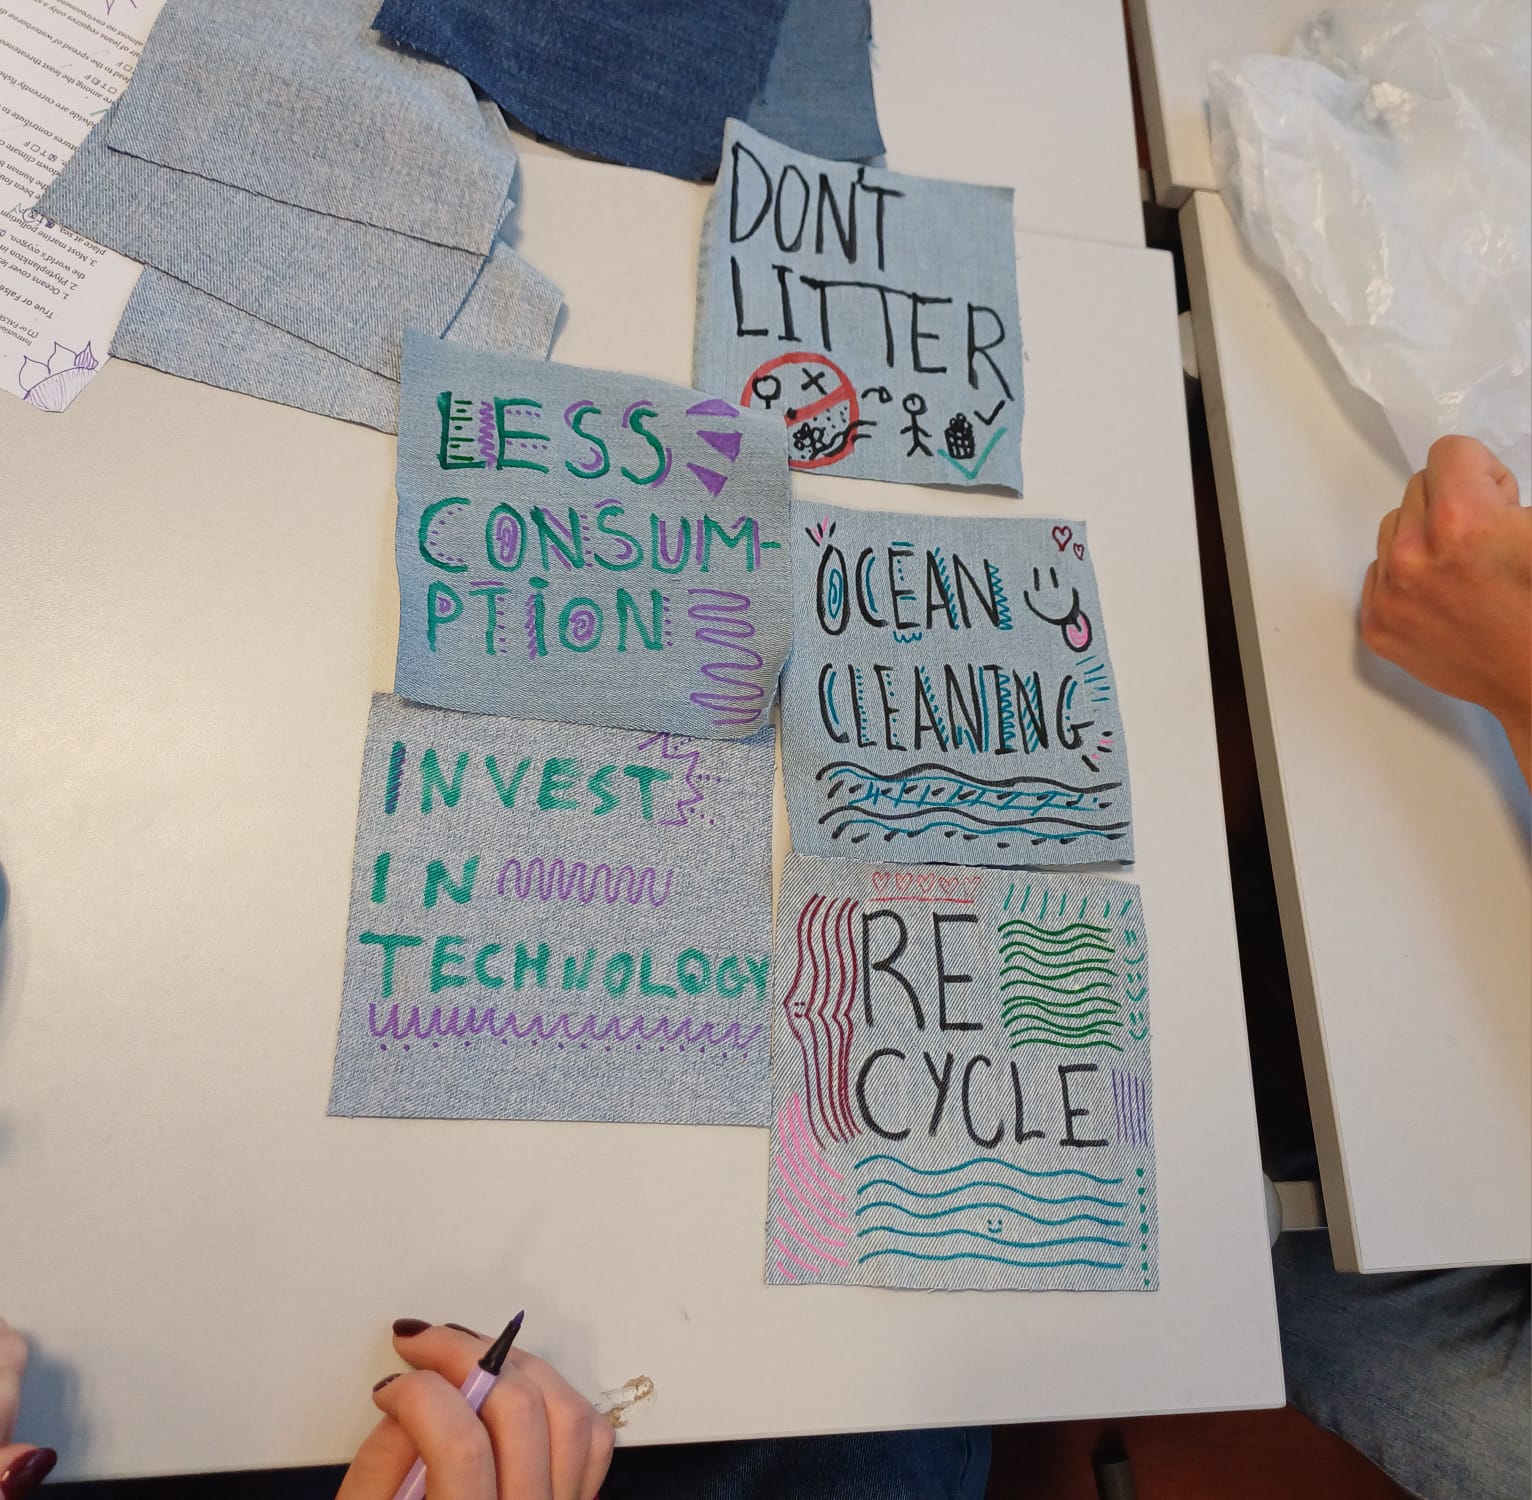 DON'T
LITTER
LESS
CONSUM-
PTION
OCEAN
CLEANING
INVEST
IN
TECHNOLOGY
RE
CYCLE
True or False
1. Oceans cover le
2. Phytoplankton in
the world's oxygen.
3. Most marine pollution
place at sea.